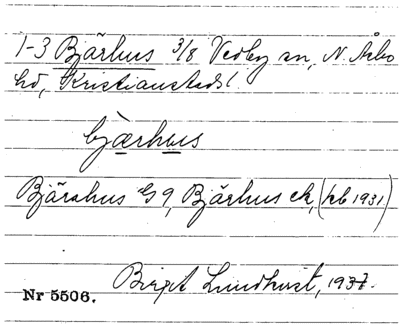 1-3 Bjärhus 3/8 Vedby sn, N. Åsbo
hd, Kristianstads l.
bjærhus
Bjärahus G9, Bjärhus ek, (hb 1931)
Birgit Lundkvist, 1937.
Nr 5506.